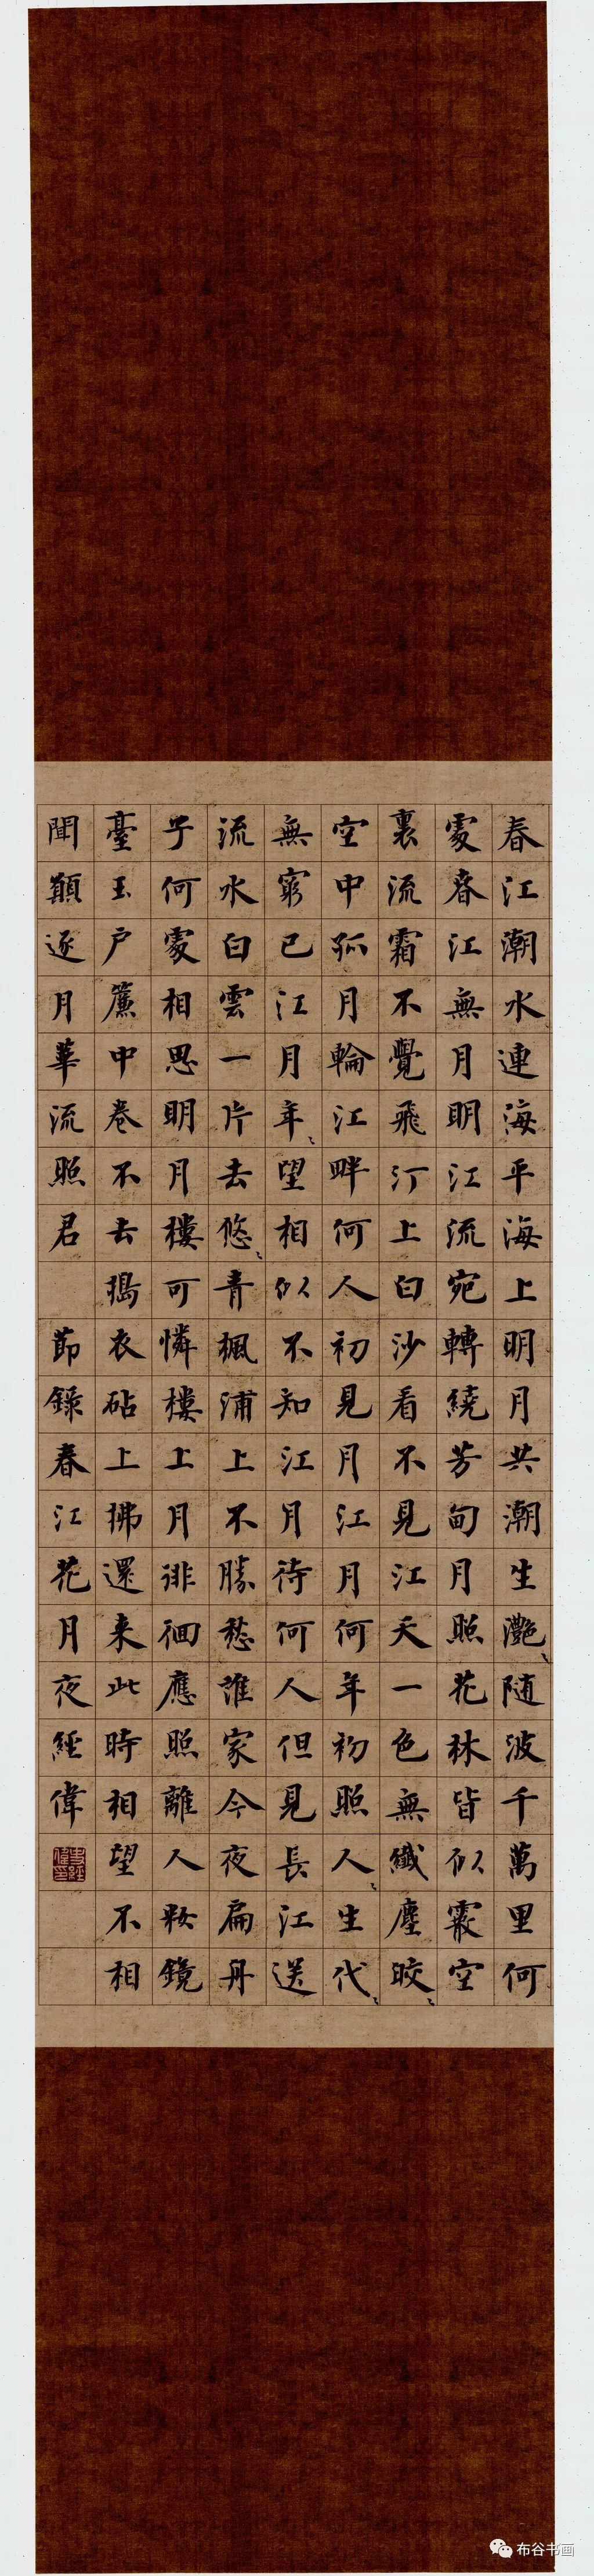 春江潮水連海平海上明月共潮生灧〻随波千萬里何
處春江無月明江流宛轉繞芳甸月照花林皆似霰空
裏流霜不覺飛汀上白沙看不見江天一色無纖塵皎〻
空中孤月輪江畔何人初見月江月何年初照人〻生代〻
無窮已江月年〻望相似不知江月待何人但見長江送
流水白雲一片去悠〻青楓浦上不勝愁誰家今夜扁舟
子何處相思明月樓可憐樓上月徘徊應照離人妝鏡
臺玉戶簾中卷不去搗衣砧上拂還来此時相望不相
聞顧逐月華流照君 節錄春江花月夜經偉
布谷书画